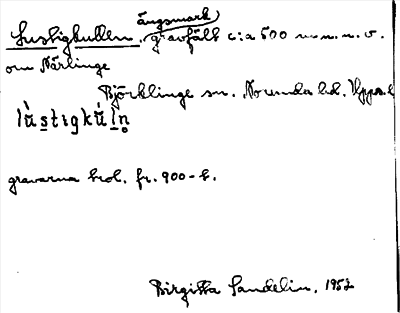 ängsmark
Lustigkullen, gravfält c:a 500 m n.n.v.
om Närlinge
Björklinge sn. Norunda hd. Uppsala
lùstigkúln̥
gravarna trol. fr. 900-t.
Birgitta Sandelin, 1952